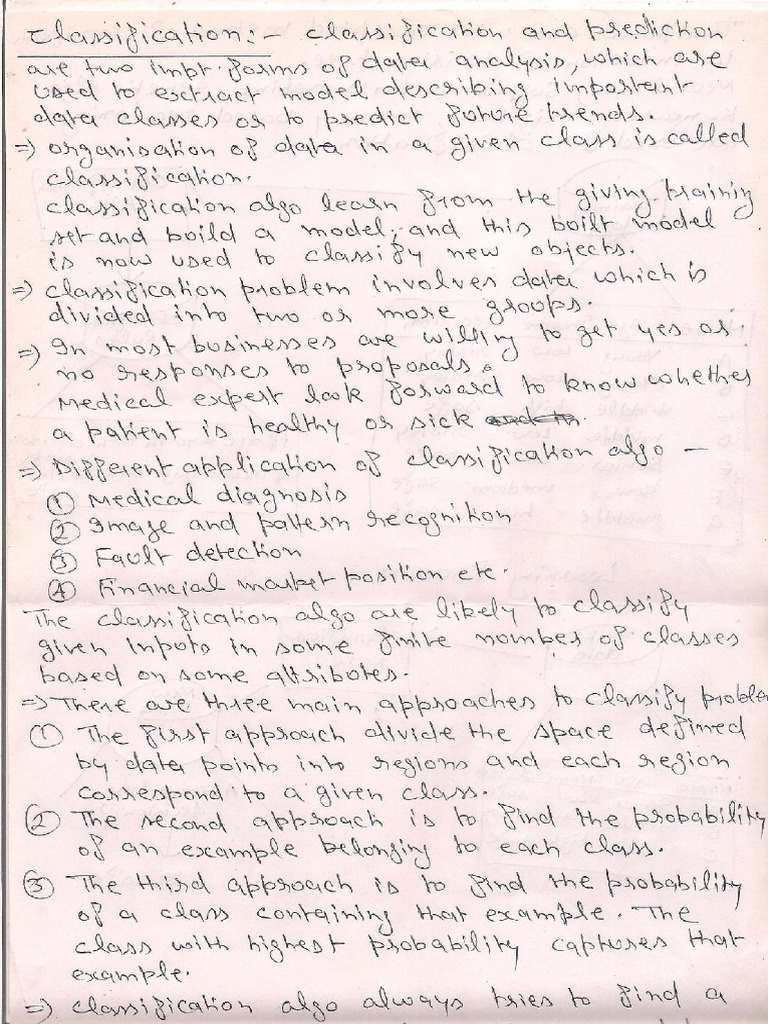 Classification:- classification and prediction
are two impt. forms of data analysis, which are
used to extract model describing important
data classes or to predict future trends.
=> organisation of data in a given class is called
classification.
classification algo learn from the giving training
set and build a model, and this built model
is now used to classify new objects.
=> classification problem involves data which is
divided into two or more groups.
=> In most businesses are willing to get yes or
no responses to proposals.
Medical expert look forward to know whether
a patient is healthy or sick
=> Different application of classification algo -
① Medical diagnosis
② Image and pattern recognition
③ Fault detection
④ Financial market position etc.
The classification algo are likely to classify
given inputs in some finite number of classes
based on some attributes.
=> There are three main approaches to classify problem
① The first approach divide the space defined
by data points into regions and each region
correspond to a given class.
② The second approach is to find the probability
of an example belonging to each class.
③ The third approach is to find the probability
of a class containing that example. The
class with highest probability captures that
example.
=> classification algo always tries to find a